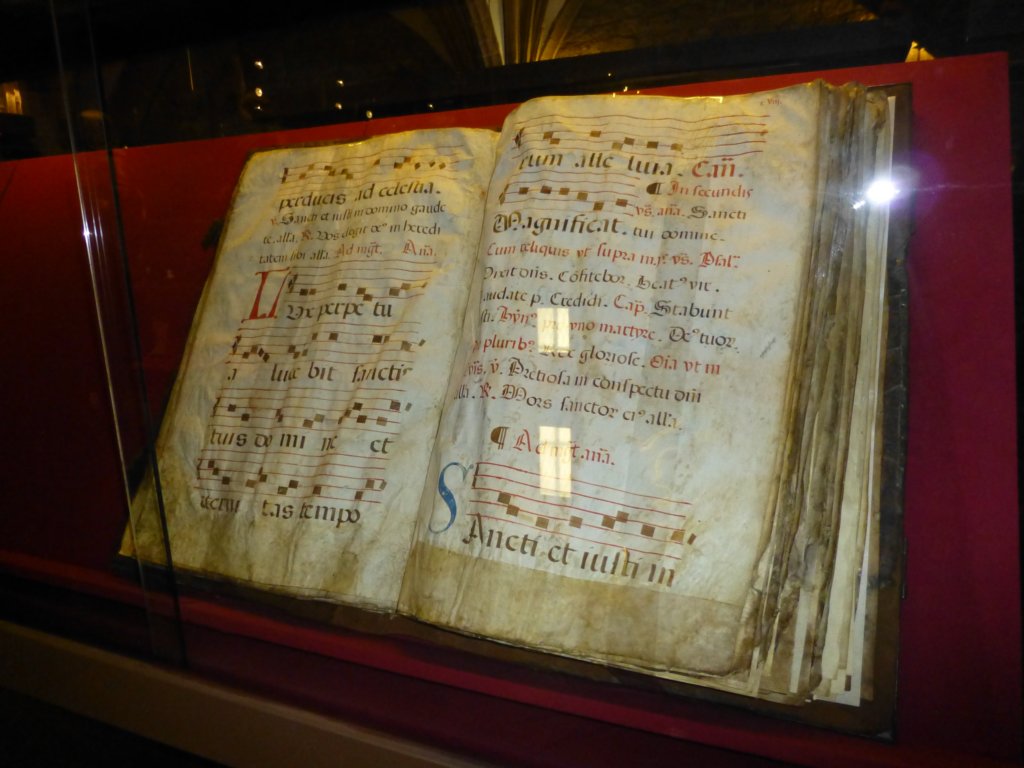 perducis ad celestia.
v. Sancti et iusti in domino gaude
te. alla. R. Vos elegit deꝰ in heredi
tatem sibi alla. Ad mgt. Aña.
Lux perpe tu
a luce bit sanctis
tuis do mi ne et
eterni tas tempo
c viij.
cum alle luia. Cañ.
¶ In secundis
Magnificat.
vs. aña. Sancti
tui domine.
Cum reliquis vt supra
vs. Psal.
Dixit dñs. Cõfitebor. Beatꝰ vir.
audate p. Credidi. Cap. Stabunt
sti. Hyñ. pro vno martyre. Deꝰ tuor.
pluribꝰ. Rex gloriose. Oia vt in
vs. v. Preciosa in conspectu dñi
alla. R. Mors sanctor eiꝰ alla.
¶ Ad mgt. aña.
Sancti et iusti in